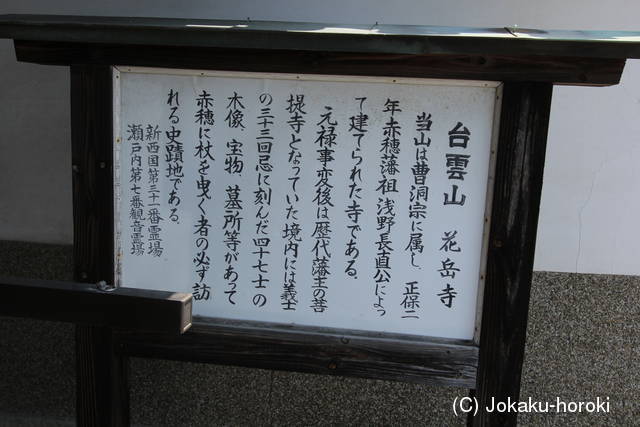 台雲山 花岳寺
当山は曹洞宗に属し、正保二
年赤穂藩祖浅野長直公によっ
て建てられた寺である。
元禄事変後は歴代藩主の菩
提寺となっていた境内には義士
の三十三回忌に刻んだ四十七士の
木像、宝物、墓所等があって
赤穂に杖を曳く者の必ず訪
れる史蹟地である。
新西国第三十一番霊場
瀬戸内第七番観音霊場
(C) Jokaku-horoki